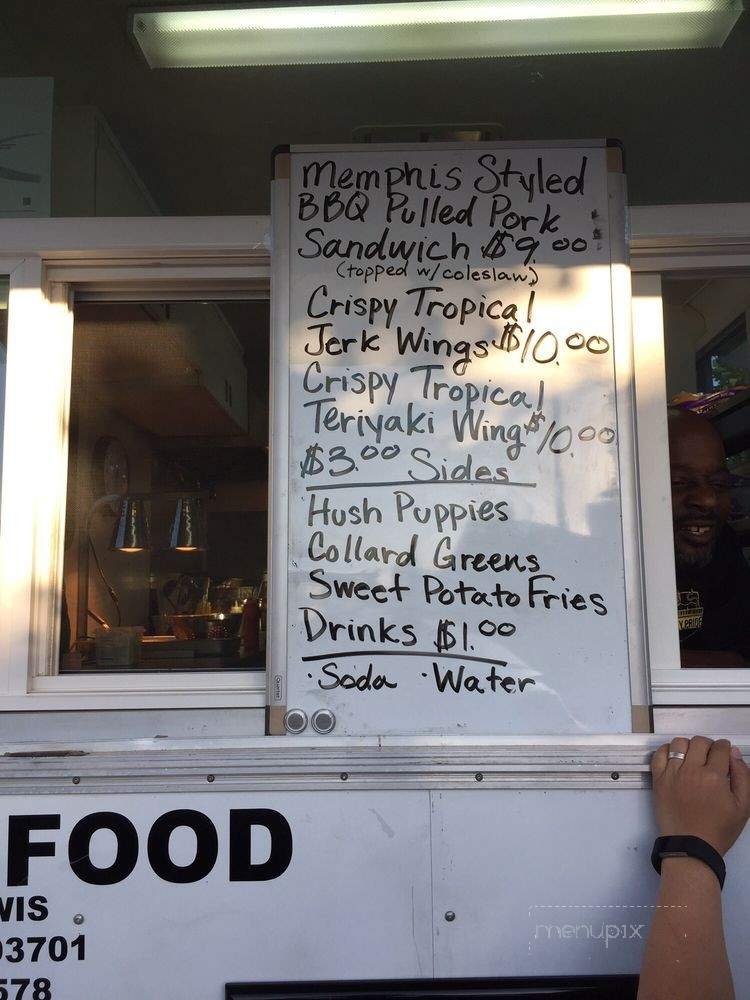 Memphis Styled
BBQ Pulled Pork
Sandwich $9.00
(topped w/coleslaw)
Crispy Tropical
Jerk Wings $10.00
Crispy Tropical
Teriyaki Wing $10.00
$3.00 Sides
Hush Puppies
Collard Greens
Sweet Potato Fries
Drinks $1.00
·Soda ·Water
Y PRIDE
FOOD
WIS
03701
578
menupix